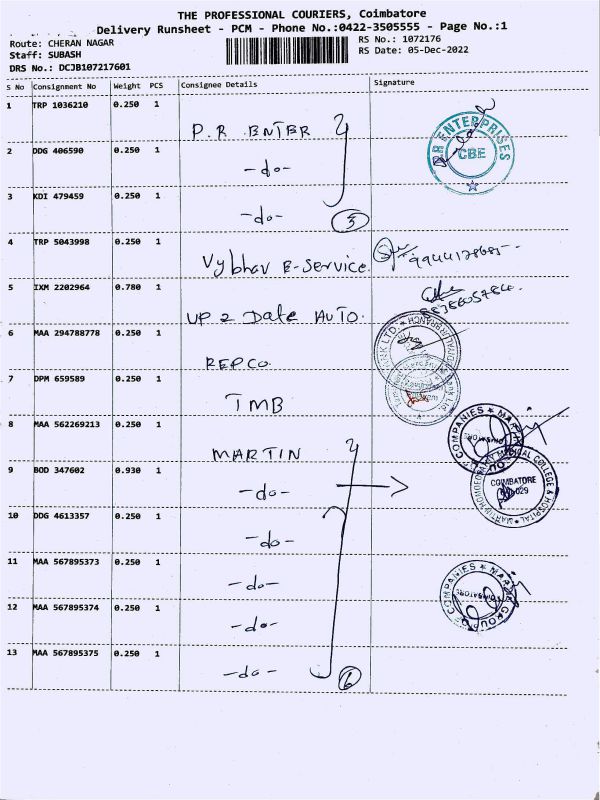 THE PROFESSIONAL COURIERS, Coimbatore
Delivery Runsheet - PCM - Phone No.:0422-3505555 - Page No.:1
Route: CHERAN NAGAR
Staff: SUBASH
DRS No.: DCJB107217601
RS No.: 1072176
RS Date: 05-Dec-2022
S No Consignment No Weight PCS Consignee Details Signature
1 TRP 1036210 0.250 1
P.R ENTER
2 DDG 406590 0.250 1
-do-
3 KDI 479459 0.250 1
-do- 3
4 TRP 5043998 0.250 1
Vybhav E-Service.
5 IXM 2202964 0.780 1
UP 2 Date AUTO.
6 MAA 294788778 0.250 1
REPCO
7 DPM 659589 0.250 1
TMB
8 MAA 562269213 0.250 1
MARTIN
9 BOD 347602 0.930 1
-do-
10 DDG 4613357 0.250 1
-do-
11 MAA 567895373 0.250 1
-do-
12 MAA 567895374 0.250 1
-do-
13 MAA 567895375 0.250 1
-do- 6
ENTERPRISES
CBE
COMPANIES ★ MARTIN
MARTIN HOMOEOPATHY MEDICAL COLLEGE & HOSPITAL
COIMBATORE
COMPANIES ★ MARTIN GROUP